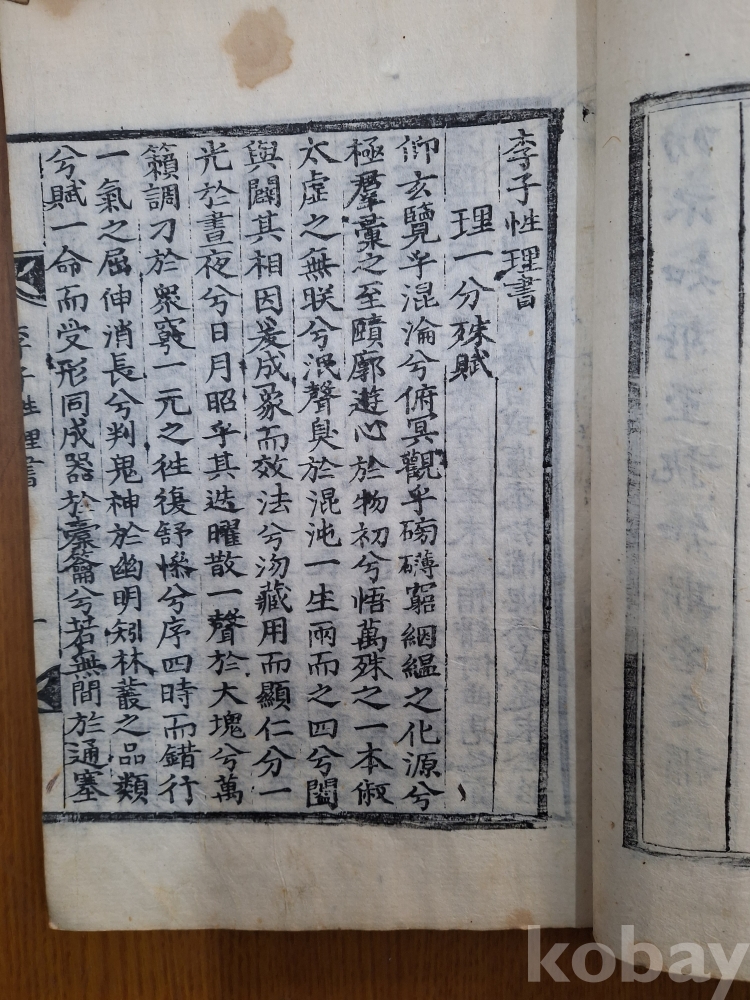 李子性理書
理一分殊賦
仰玄覽乎混淪兮俯冥觀乎磅礴窮絪縕之化源兮
極羣彙之至賾廓遊心於物初兮悟萬殊之一本俶
太虛之無眹兮泯聲臭於混沌一生兩而之四兮闔
與闢其相因爰成象而效法兮沕藏用而顯仁分一
光於晝夜兮日月昭乎其迭曜散一聲於大塊兮萬
籟調刁於衆竅一元之徃復舒慘兮序四時而錯行
一氣之屈伸消長兮判鬼神於幽明矧林叢之品類
兮賦一命而受形同成器於橐籥兮若無間於通塞
李子性理書
一
kobay